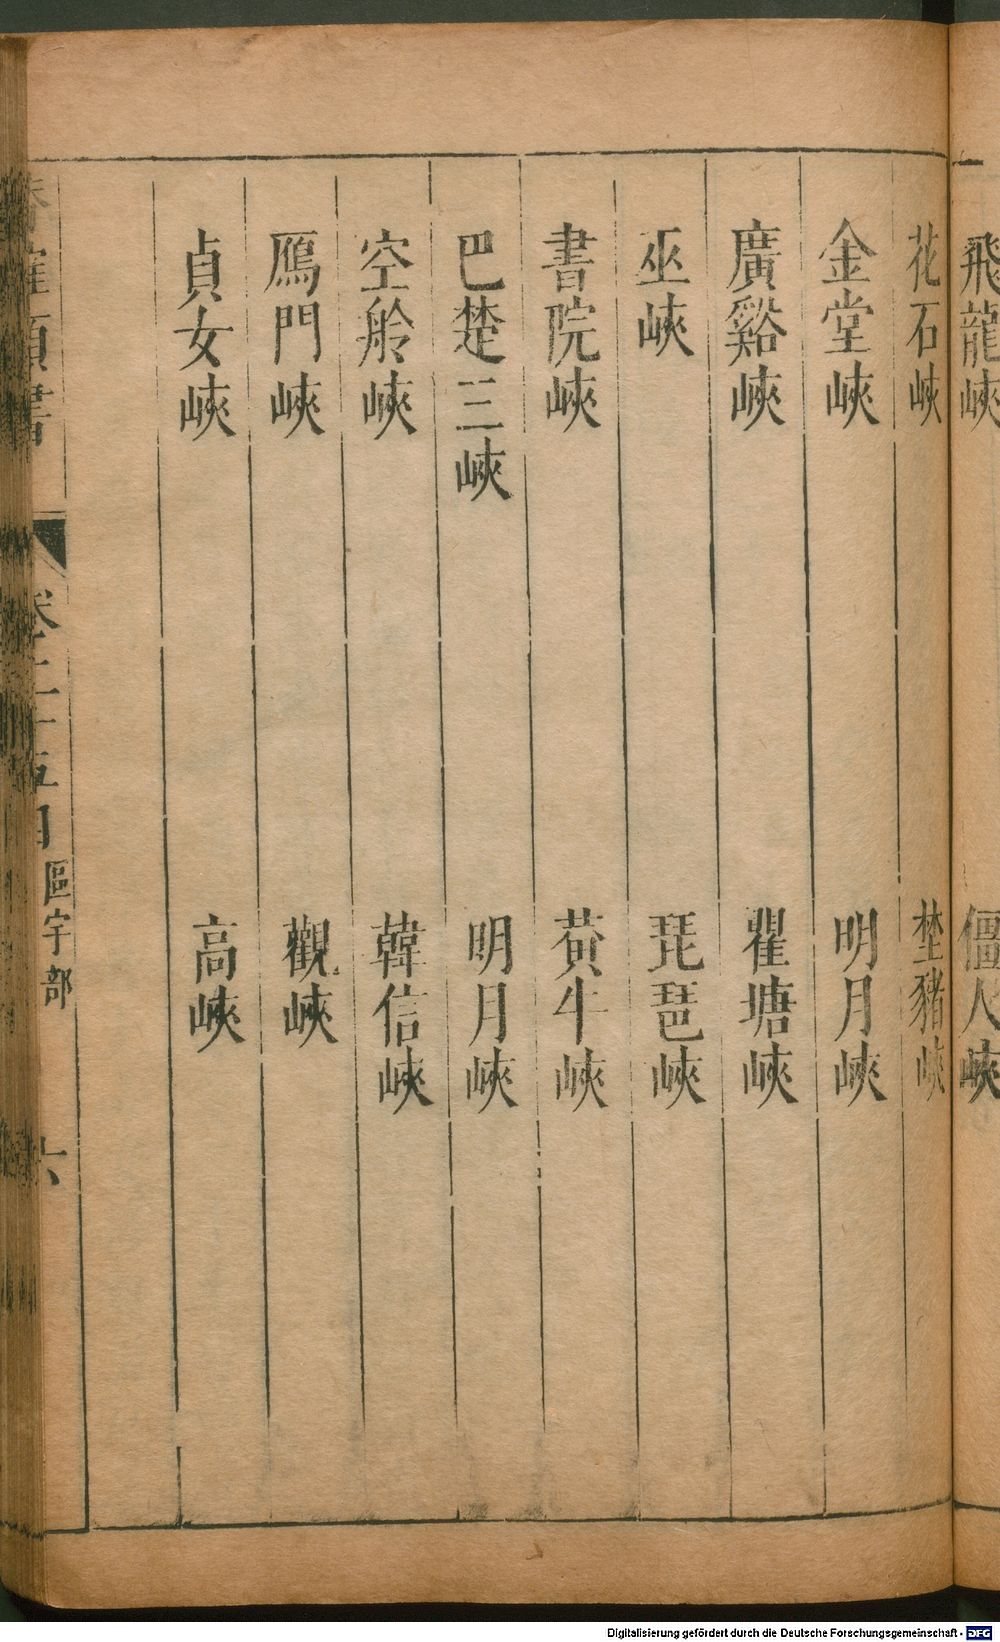 飛龍峽 僵人峽
花石峽 埜豬峽
金堂峽 明月峽
廣谿峽 瞿塘峽
巫峽 琵琶峽
書院峽 黄牛峽
巴楚三峽 明月峽
空舲峽 韓信峽
鴈門峽 觀峽
貞女峽 高峽
類書 卷二十五目 區宇部 六
Digitalisierung gefördert durch die Deutsche Forschungsgemeinschaft - DFG